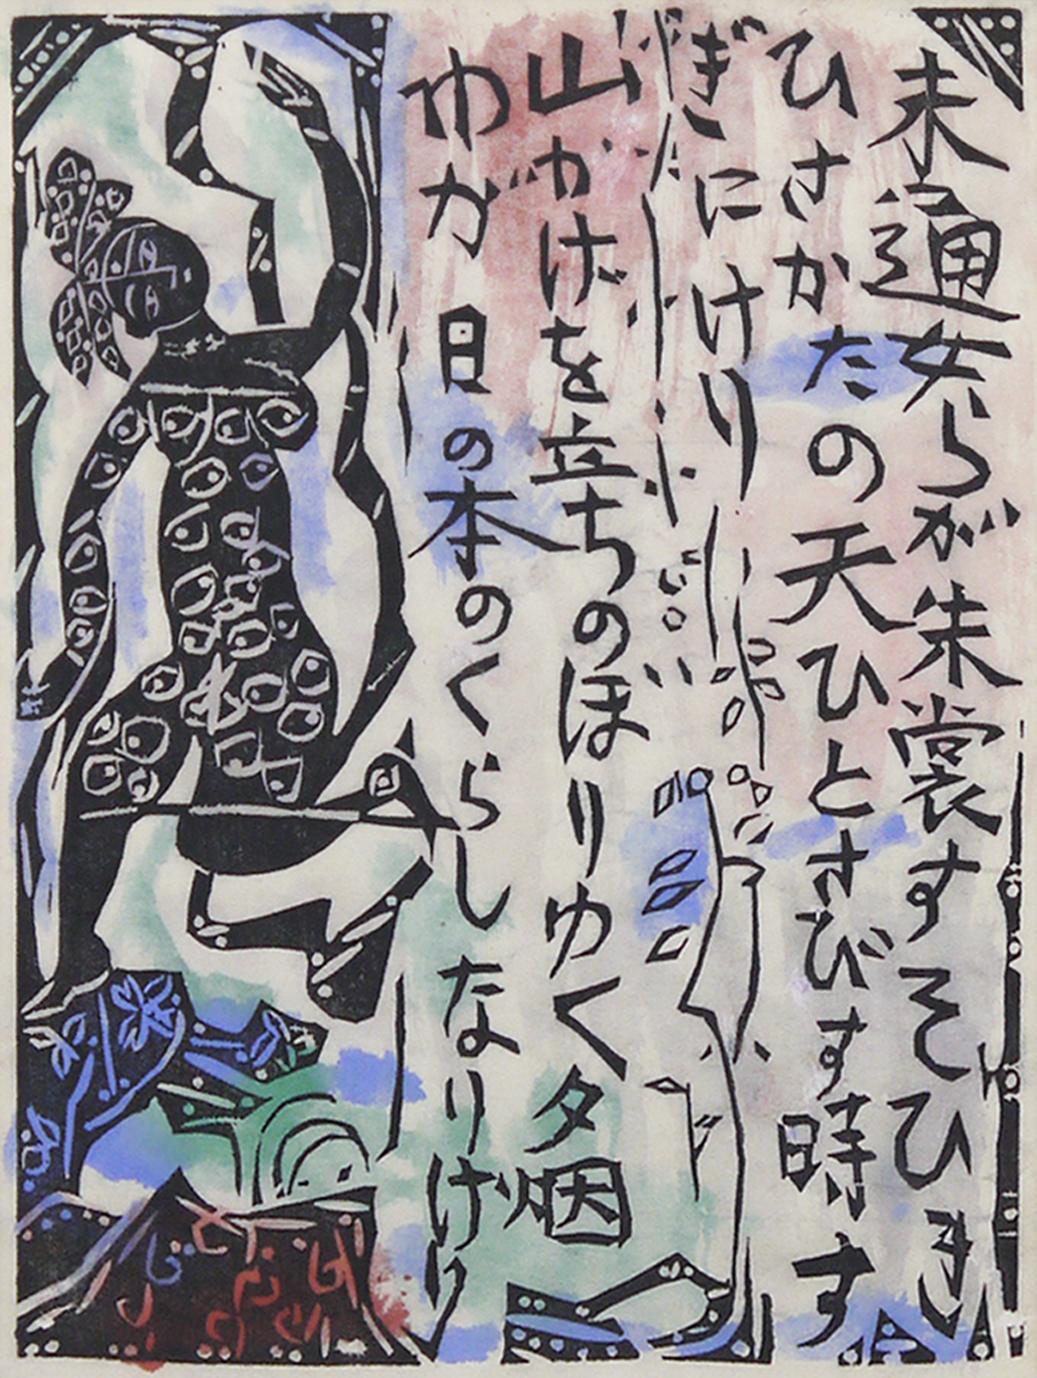 未通女らが朱裳すそひき
ひさかたの天ひとさびす時す
ぎにけり
山かげを立ちのぼりゆく夕烟
わが日の本のくらしなりけり